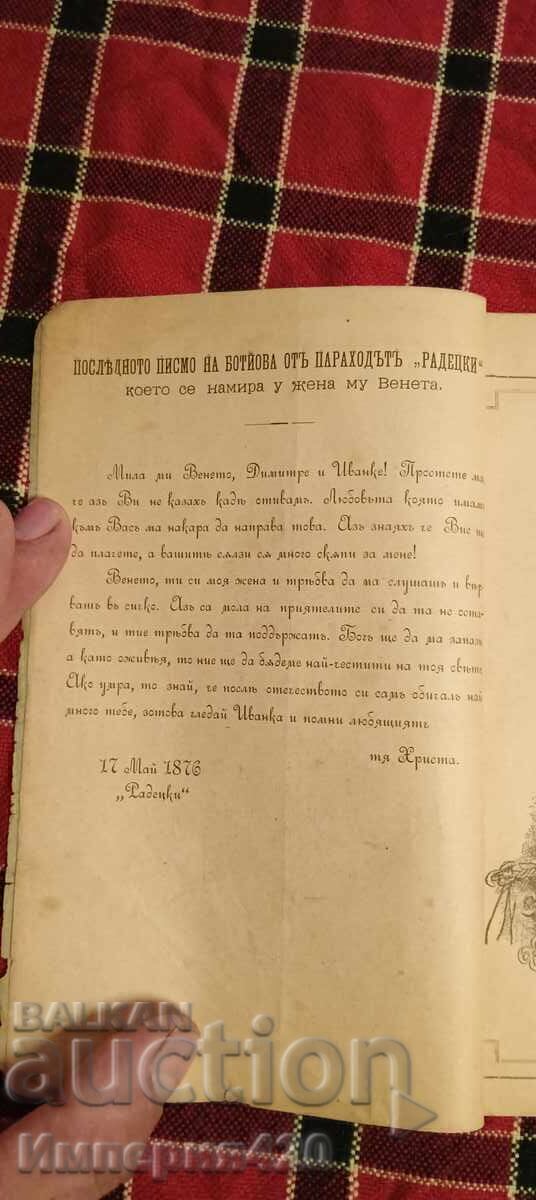 ПОСЛѢДНОТО ПИСМО НА БОТЙОВА ОТЪ ПАРАХОДЪТЪ „РАДЕЦКИ“
което се намира у жена му Венета.
Мила ми Венето, Димитре и Иванке! Простете ма,
че азъ Ви не казахъ кадѣ отивамъ. Любовьта която имамъ
къмъ Васъ ма накара да направа това. Азъ знаяхъ че Вие
да плачете, а вашитѣ сѫлзи сѫ много скѫпи за мене!
Венето, ти си моя жена и трѣбва да ма слушашъ и вѣр
вашъ въ сичко. Азъ са мола на приятелите си да та не оста-
вятъ, и тие трѣбва да та поддържатъ. Богъ ще да ма запази
а като оживѣя, то ние ще да бѫдеме най-честити на тоя свѣтъ
Ако умра, то знай, че послѣ отечеството си самъ обичалъ най
много тебе, зотова гледай Иванка и помни любящиятъ
тя Христа.
17 Май 1876
„Радецки“
BALKAN
auction
Империя420